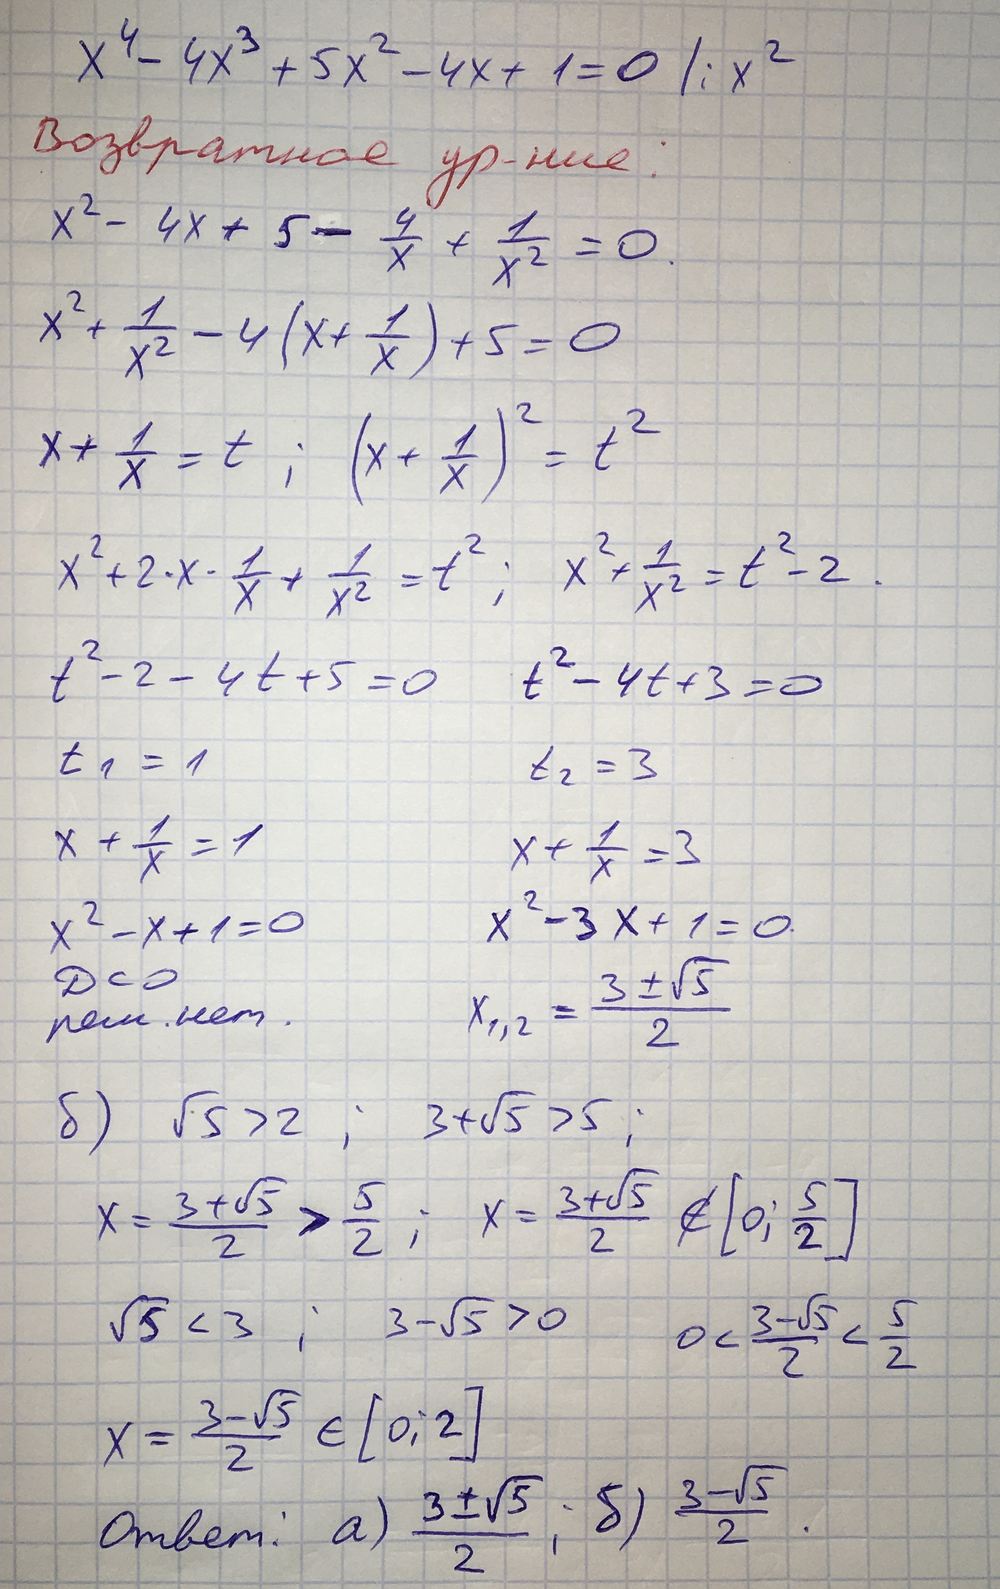 x⁴ - 4x³ + 5x² - 4x + 1 = 0 /: x²
Возвратное ур-ние:
x² - 4x + 5 - 4/x + 1/x² = 0.
x² + 1/x² - 4(x + 1/x) + 5 = 0
x + 1/x = t ; (x + 1/x)² = t²
x² + 2·x·1/x + 1/x² = t² ; x² + 1/x² = t² - 2.
t² - 2 - 4t + 5 = 0 t² - 4t + 3 = 0
t₁ = 1 t₂ = 3
x + 1/x = 1 x + 1/x = 3
x² - x + 1 = 0 x² - 3x + 1 = 0.
D < 0
реш. нет. x₁,₂ = (3 ± √5)/2
б) √5 > 2 ; 3 + √5 > 5 ;
x = (3 + √5)/2 > 5/2 ; x = (3 + √5)/2 ∉ [0; 5/2]
√5 < 3 ; 3 - √5 > 0 0 < (3 - √5)/2 < 5/2
x = (3 - √5)/2 ∈ [0; 2]
Ответ: а) (3 ± √5)/2 ; б) (3 - √5)/2 .